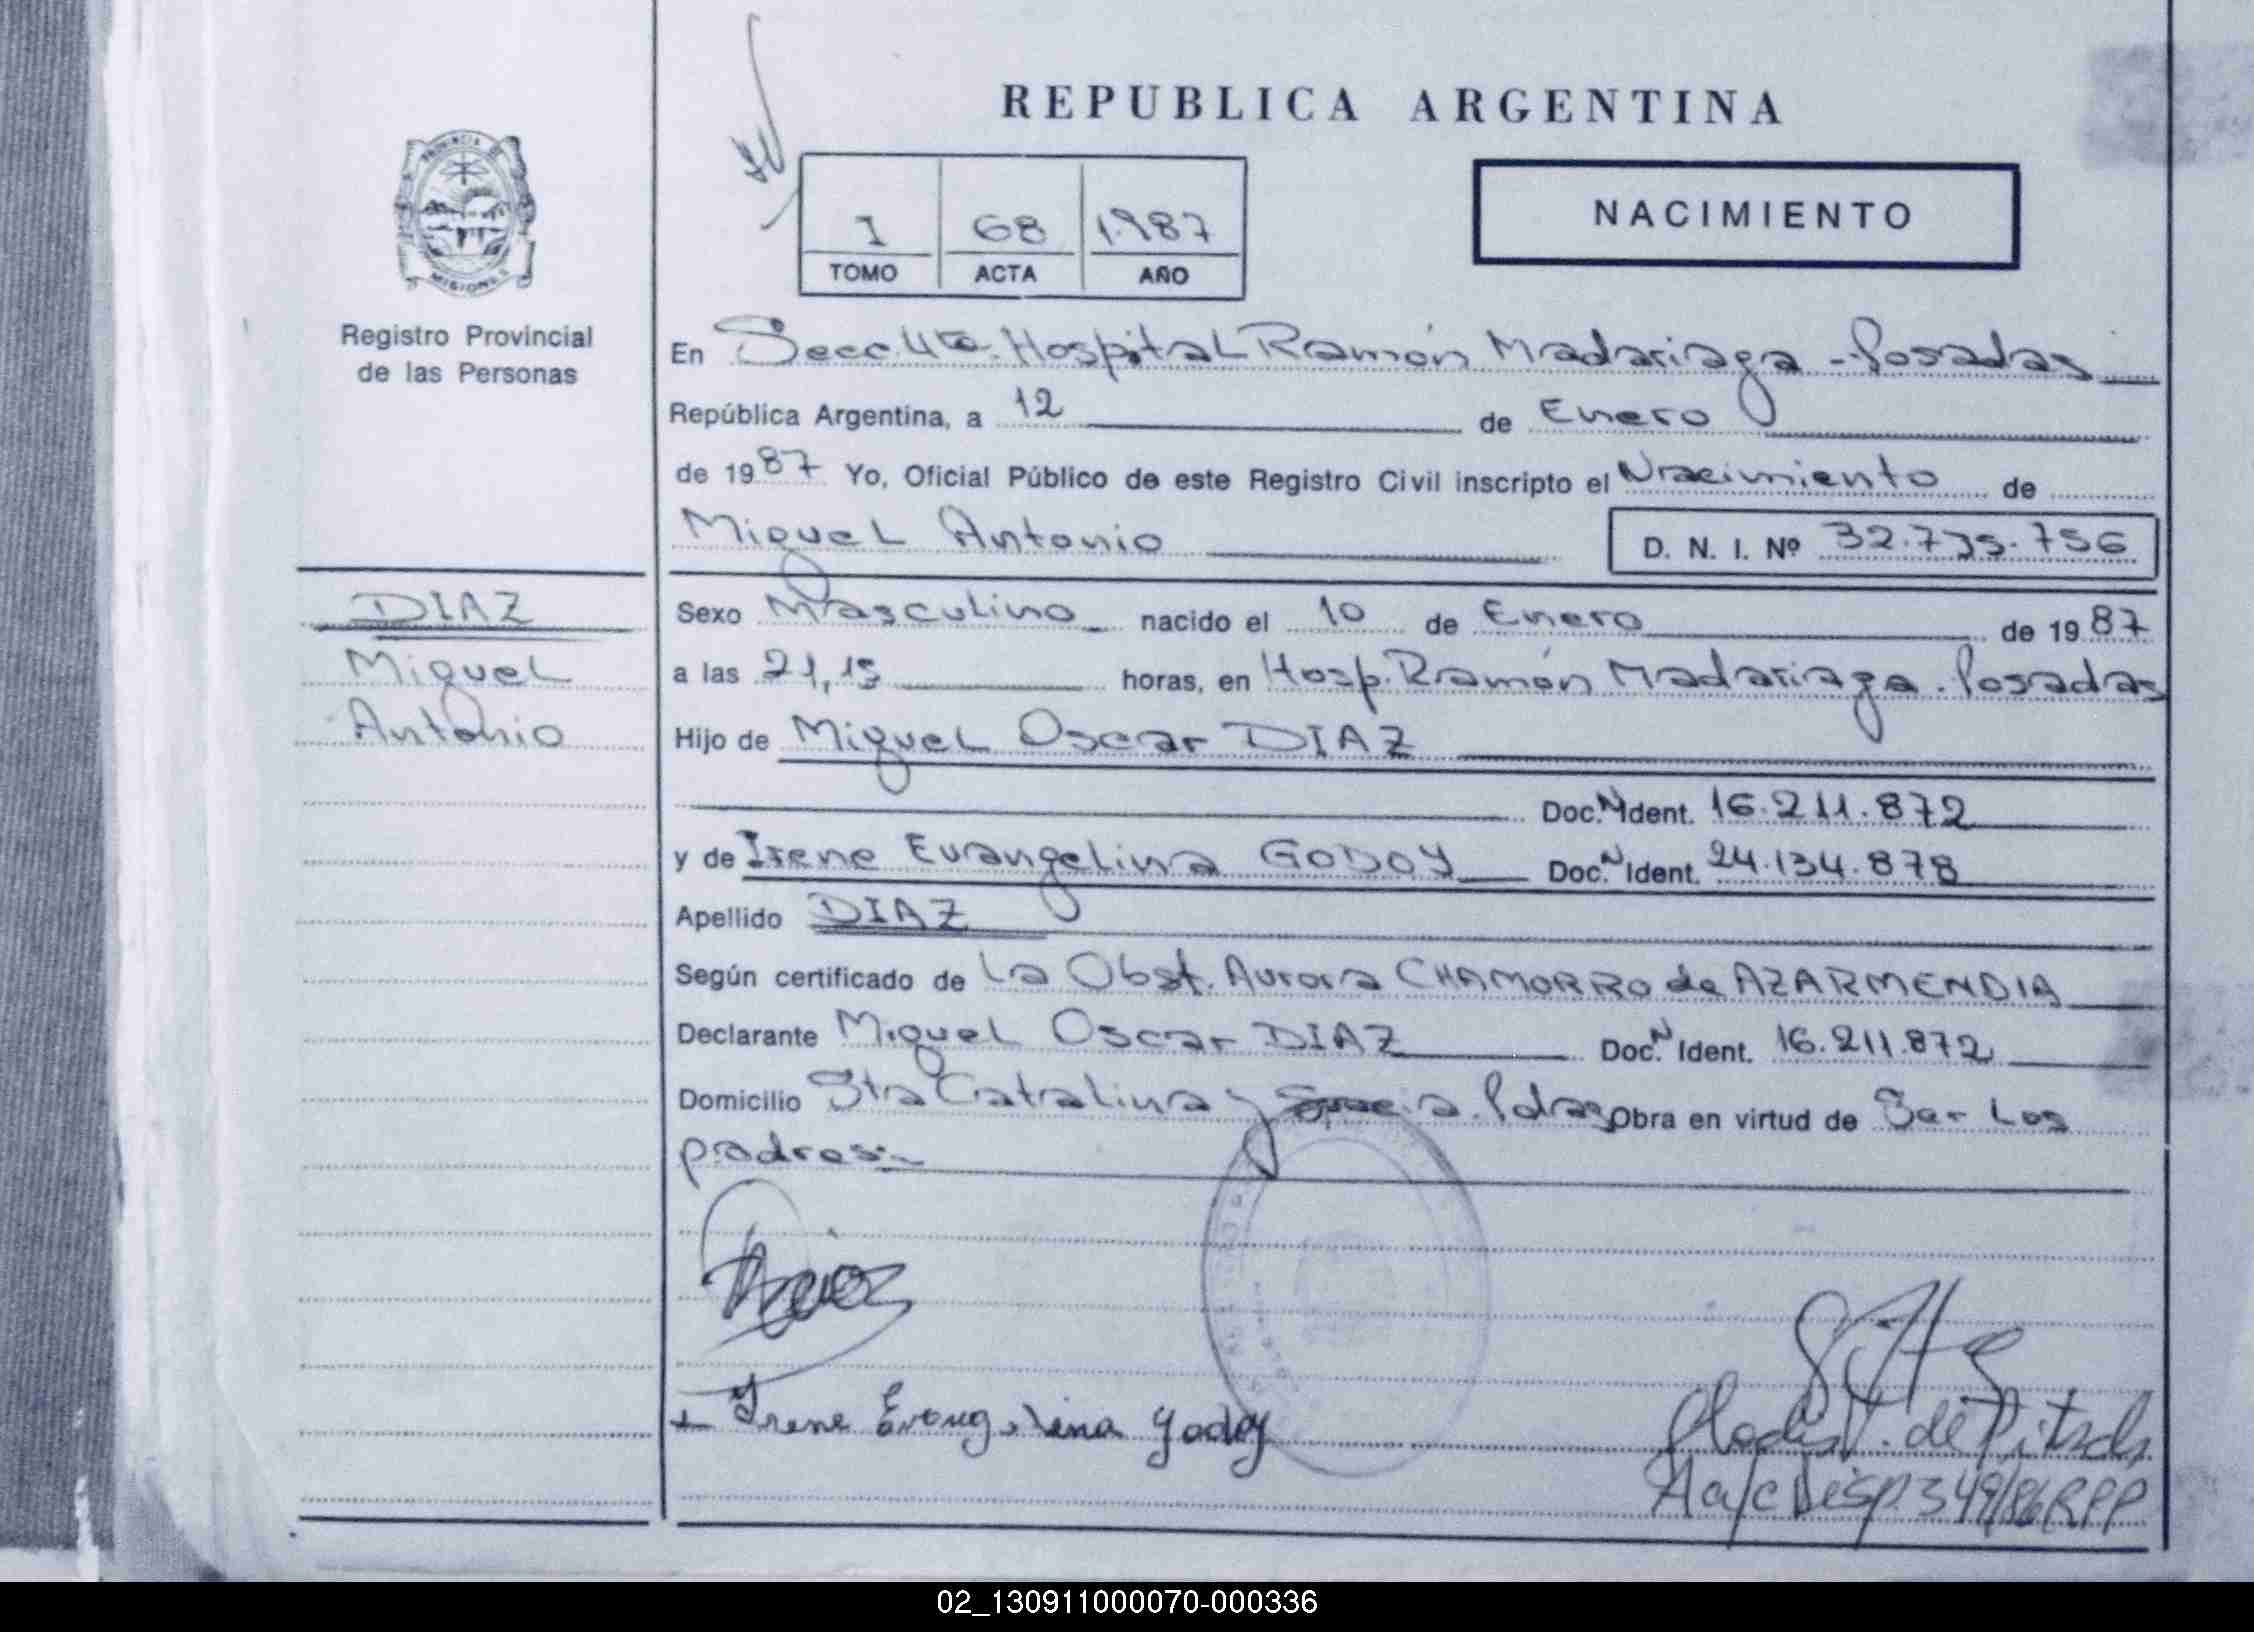 REPUBLICA ARGENTINA
PROVINCIA DE
MISIONES
Registro Provincial
de las Personas
I 68 1987
TOMO ACTA AÑO
NACIMIENTO
En Secc. 4ta. Hospital Ramón Madariaga - Posadas
República Argentina, a 12 de Enero
de 1987 Yo, Oficial Público de este Registro Civil inscripto el Nacimiento de
Miguel Antonio D. N. I. Nº 32.735.756
DIAZ
Miguel
Antonio
Sexo Masculino nacido el 10 de Enero de 1987
a las 21,15 horas, en Hosp. Ramón Madariaga. Posadas
Hijo de Miguel Oscar DIAZ
Doc. N Ident. 16.211.872
y de Irene Evangelina GODOY Doc. N Ident. 24.134.878
Apellido DIAZ
Según certificado de La Obst. Aurora CHAMORRO de AZARMENDIA
Declarante Miguel Oscar DIAZ Doc. N Ident. 16.211.872
Domicilio Sta Catalina y Pdas Obra en virtud de Ser Los
padres.-
Irene Evangelina Godoy
de
A a/c Disp. 349/86 RPP
02_130911000070-000336